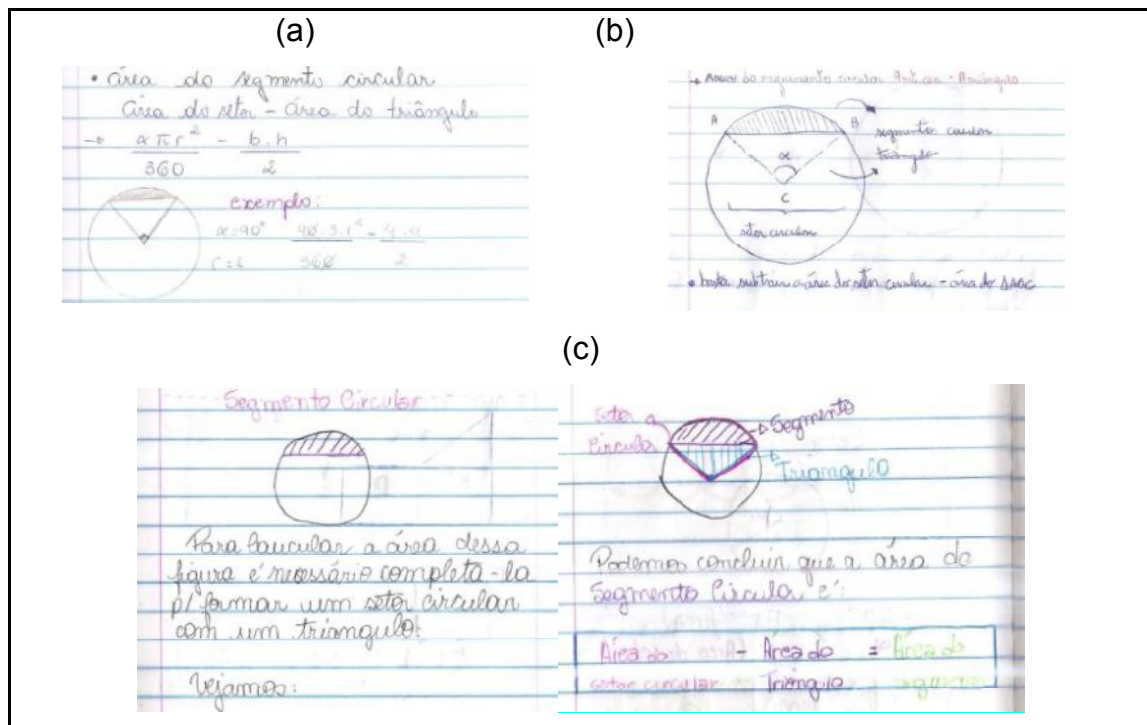 (a)
• área do segmento circular
área do setor - área do triângulo
→ απr² - b.h
360 2
exemplo:
α=90°
360 2
(b)
do seguimento circular
A B
segmento circular
triângulo
α
C
setor circular
• basta subtrair a área do setor circular - área do ΔABC
(c)
Segmento Circular
Para Caucular a área dessa
figura é necessário completa-la
p/ formar um setor circular
com um triangulo:
Vejamos:
setor
Circular
Segmento
Triangulo
Podemos concluir que a área do
Segmento Circular é:
Área do - Área do = Área do
setor circular Triângulo